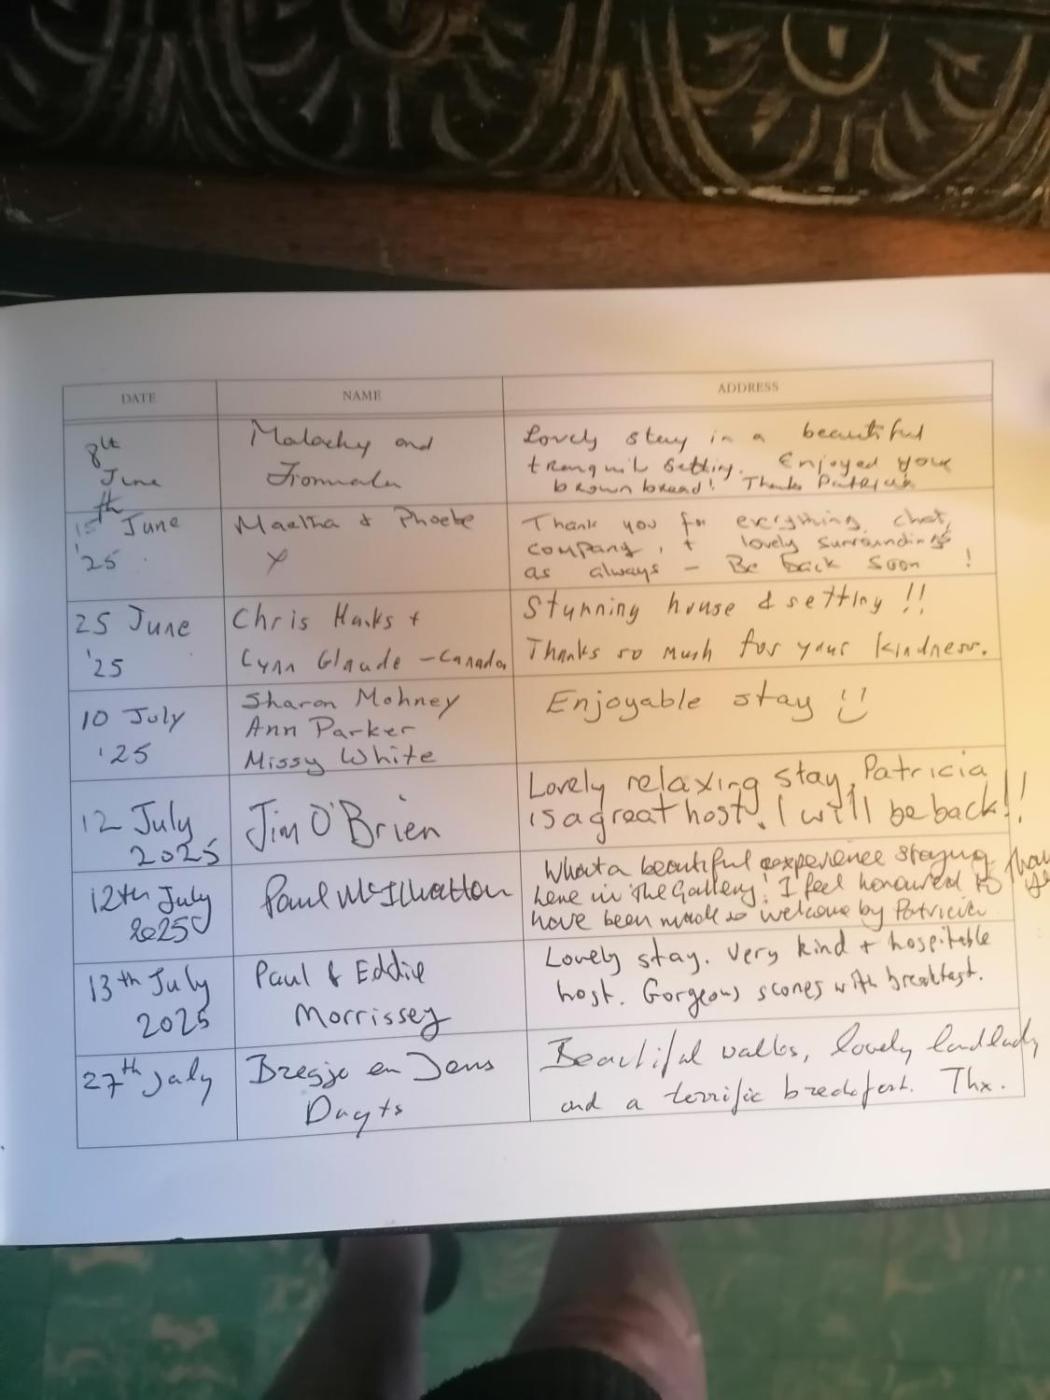 DATE NAME ADDRESS
8th
June
Malachy and
Lovely stay in a beautiful
tranquil setting. Enjoyed your
brown bread! Thanks Patricia
15th June
'25
Martha & Phoebe
x
Thank you for everything, chat,
company, + lovely surroundings
as always - Be back soon !
25 June
'25
Chris Hanks +
Lynn Glaude - Canada
Stunning house & setting !!
Thanks so much for your kindness.
10 July
'25
Sharon Mohney
Ann Parker
Missy White
Enjoyable stay
12 July
2025
Jim O'Brien
Lovely relaxing stay, Patricia
is a great host. I will be back!!
12th July
2025
Paul McIlhatton
What a beautiful experience staying
here in The Gallery! I feel honoured to
have been made so welcome by Patricia
13th July
2025
Paul & Eddie
Morrissey
Lovely stay. Very kind + hospitable
host. Gorgeous scones with breakfast.
27th July
en Jens
Beautiful walks, lovely landlady
and a terrific breakfast. Thx.